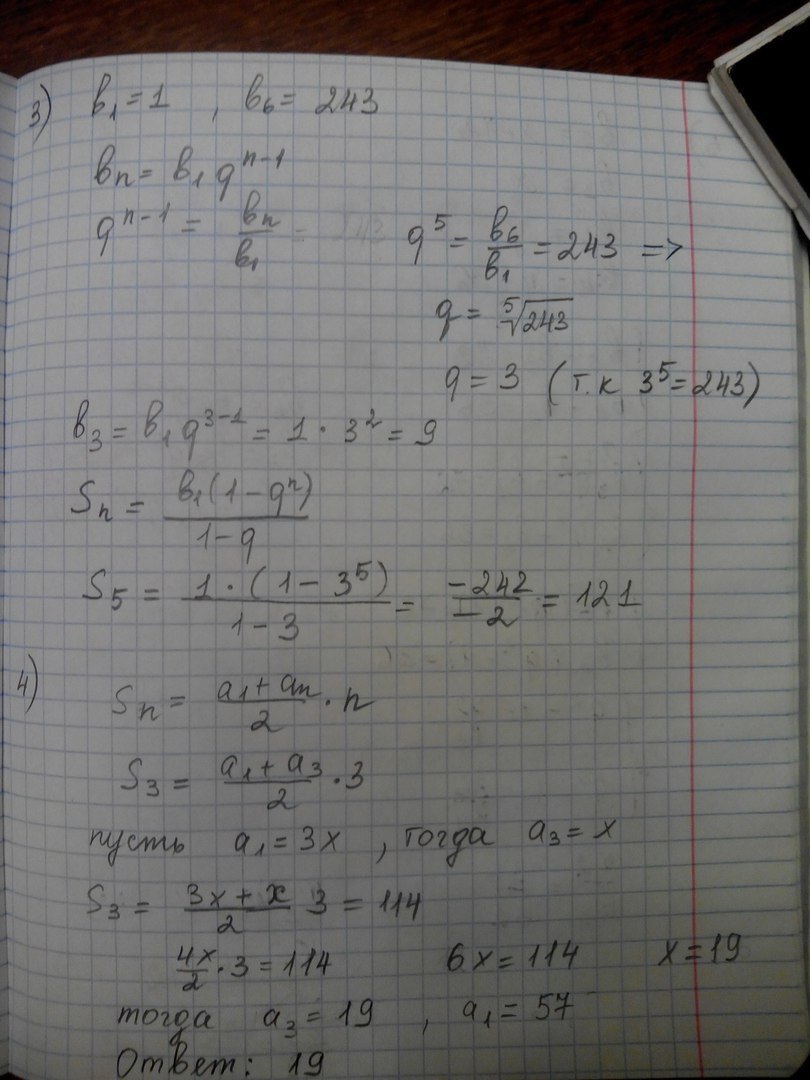 3) b₁ = 1 , b₆ = 243
bₙ = b₁ qⁿ⁻¹
qⁿ⁻¹ = bₙ/b₁ = 243
q⁵ = b₆/b₁ = 243 =>
q = ⁵√243
q = 3 (т.к 3⁵ = 243)
b₃ = b₁ q³⁻¹ = 1 · 3² = 9
Sₙ = b₁(1 - qⁿ)/1 - q
S₅ = 1 · (1 - 3⁵)/1 - 3 = -242/-2 = 121
4) Sₙ = a₁ + aₙ/2 · n
S₃ = a₁ + a₃/2 · 3
пусть a₁ = 3x , тогда a₃ = x
S₃ = 3x + x/2 3 = 114
4x/2 · 3 = 114 6x = 114 x = 19
тогда a₃ = 19 , a₁ = 57
Ответ: 19